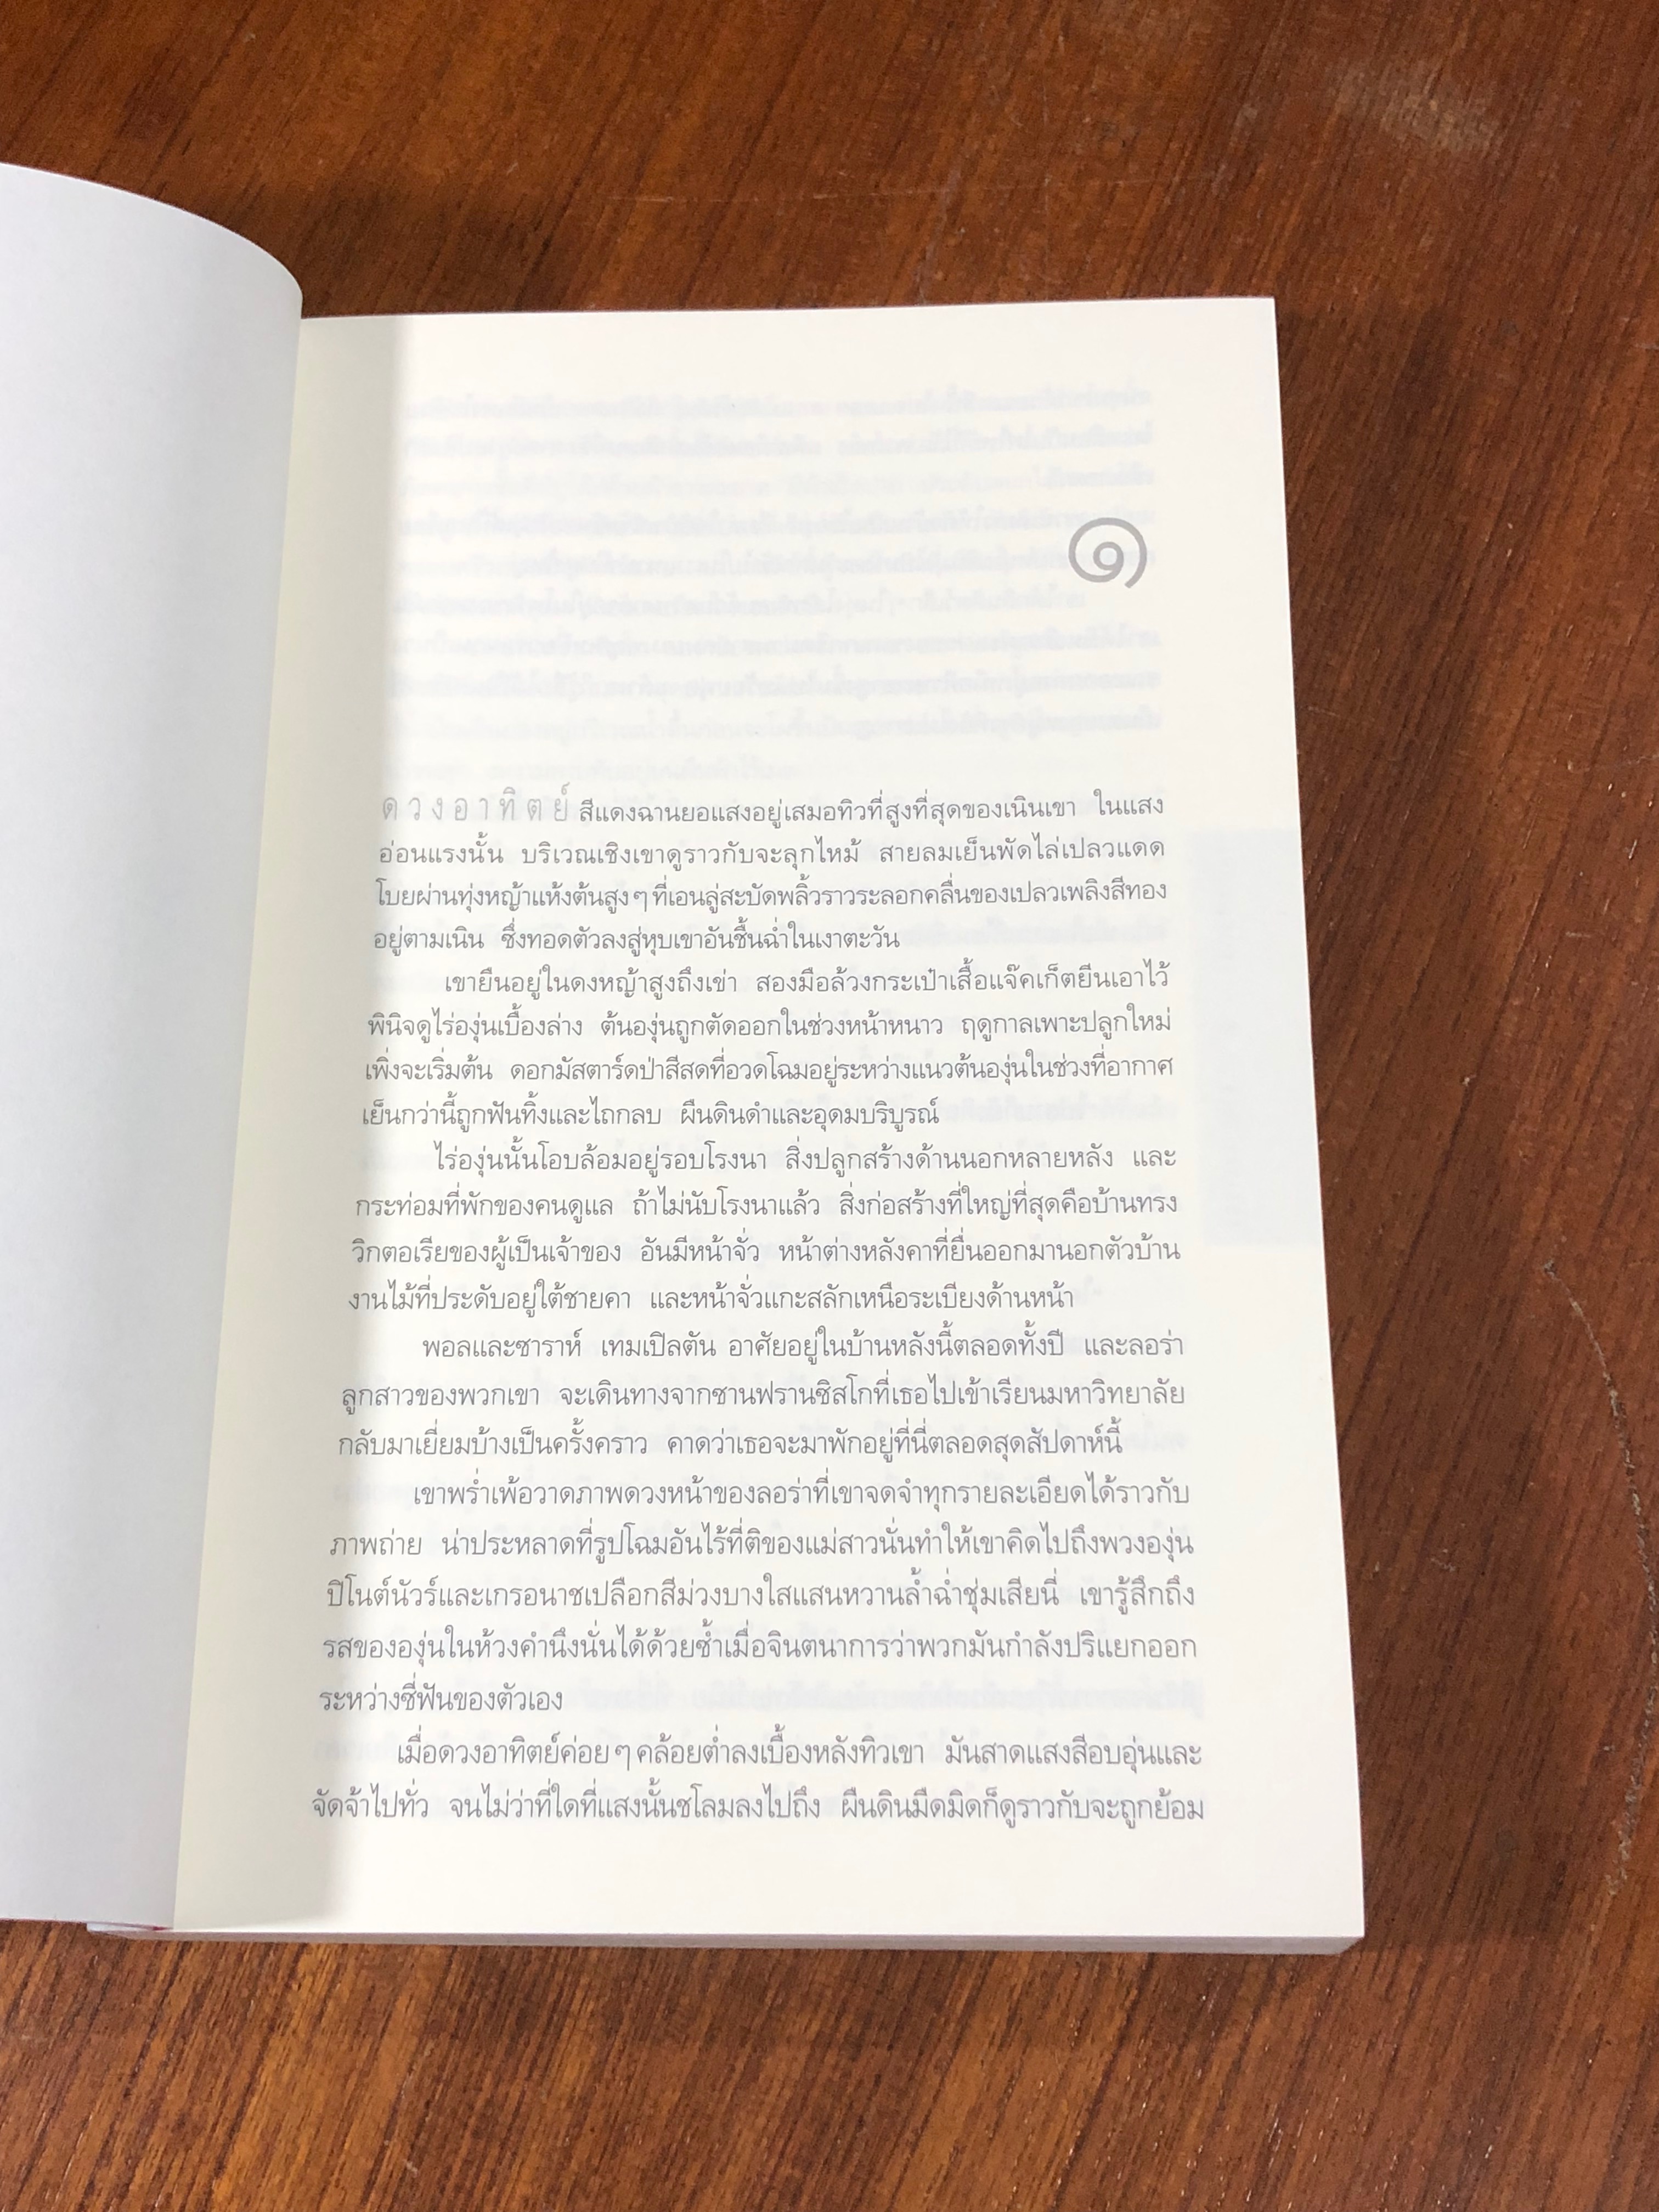 ๑
ดวงอาทิตย์ สีแดงฉานยอแสงอยู่เสมอทิวที่สูงที่สุดของเนินเขา ในแสง
อ่อนแรงนั้น บริเวณเชิงเขาดูราวกับจะลุกไหม้ สายลมเย็นพัดไล่เปลวแดด
โบยผ่านทุ่งหญ้าแห้งต้นสูงๆ ที่เอนลู่สะบัดพลิ้วราวระลอกคลื่นของเปลวเพลิงสีทอง
อยู่ตามเนิน ซึ่งทอดตัวลงสู่หุบเขาอันชื้นฉ่ำในเงาตะวัน
เขายืนอยู่ในดงหญ้าสูงถึงเข่า สองมือล้วงกระเป๋าเสื้อแจ๊คเก็ตยีนเอาไว้
พินิจดูไร่องุ่นเบื้องล่าง ต้นองุ่นถูกตัดออกในช่วงหน้าหนาว ฤดูกาลเพาะปลูกใหม่
เพิ่งจะเริ่มต้น ดอกมัสตาร์ดป่าสีสดที่อวดโฉมอยู่ระหว่างแนวต้นองุ่นในช่วงที่อากาศ
เย็นกว่านี้ถูกฟันทิ้งและไถกลบ ผืนดินดำและอุดมบริบูรณ์
ไร่องุ่นนั้นโอบล้อมอยู่รอบโรงนา สิ่งปลูกสร้างด้านนอกหลายหลัง และ
กระท่อมที่พักของคนดูแล ถ้าไม่นับโรงนาแล้ว สิ่งก่อสร้างที่ใหญ่ที่สุดคือบ้านทรง
วิกตอเรียของผู้เป็นเจ้าของ อันมีหน้าจั่ว หน้าต่างหลังคาที่ยื่นออกมานอกตัวบ้าน
งานไม้ที่ประดับอยู่ใต้ชายคา และหน้าจั่วแกะสลักเหนือระเบียงด้านหน้า
พอลและซาราห์ เทมเปิลตัน อาศัยอยู่ในบ้านหลังนี้ตลอดทั้งปี และลอร่า
ลูกสาวของพวกเขา จะเดินทางจากซานฟรานซิสโกที่เธอไปเข้าเรียนมหาวิทยาลัย
กลับมาเยี่ยมบ้างเป็นครั้งคราว คาดว่าเธอจะมาพักอยู่ที่นี่ตลอดสุดสัปดาห์นี้
เขาพร่ำเพ้อวาดภาพดวงหน้าของลอร่าที่เขาจดจำทุกรายละเอียดได้ราวกับ
ภาพถ่าย น่าประหลาดที่รูปโฉมอันไร้ที่ติของแม่สาวนั่นทำให้เขาคิดไปถึงพวงองุ่น
ปิโนต์นัวร์และเกรอนาชเปลือกสีม่วงบางใสแสนหวานล้ำฉ่ำชุ่มเสียนี่ เขารู้สึกถึง
รสขององุ่นในห้วงคำนึงนั่นได้ด้วยซ้ำเมื่อจินตนาการว่าพวกมันกำลังปริแยกออก
ระหว่างซี่ฟันของตัวเอง
เมื่อดวงอาทิตย์ค่อยๆ คล้อยต่ำลงเบื้องหลังทิวเขา มันสาดแสงสีอบอุ่นและ
จัดจ้าไปทั่ว จนไม่ว่าที่ใดที่แสงนั้นชโลมลงไปถึง ผืนดินมืดมิดก็ดูราวกับจะถูกย้อม